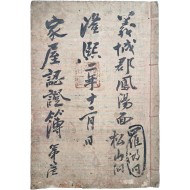 義城郡鳳陽面松山洞
隆熙二年十二月日
家屋認證簿